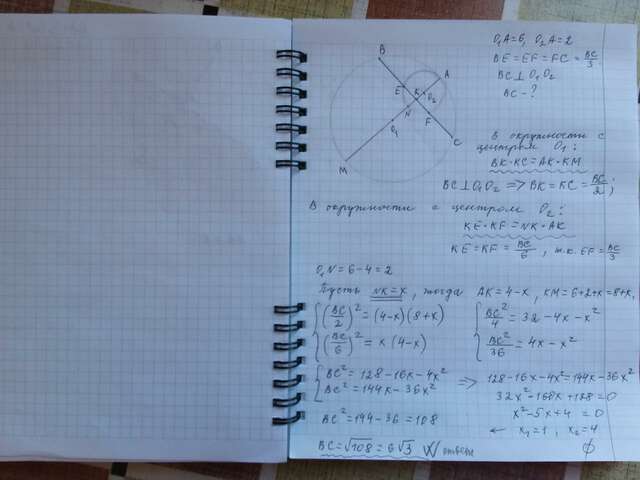 O₁A=6, O₂A=2
BE=EF=FC=BC/3
BC⊥O₁O₂
BC-?
B
A
E
K
O₂
N
O₁
F
C
M
В окружности с
центром O₁:
BK·KC=AK·KM
BC⊥O₁O₂ => BK=KC=BC/2;
В окружности с центром O₂:
KE·KF=NK·AK
KE=KF=BC/6, т.к. EF=BC/3
O₁N=6-4=2
Пусть NK=x, тогда AK=4-x, KM=6+2+x=8+x,
(BC/2)²=(4-x)(8+x)
(BC/6)²=x(4-x)
BC²/4=32-4x-x²
BC²/36=4x-x²
BC²=128-16x-4x²
BC²=144x-36x²
=> 128-16x-4x²=144x-36x²
32x²-160x+128=0
x²-5x+4=0
BC²=144-36=108
← x₁=1, x₂=4
∅
BC=√108=6√3 ответ